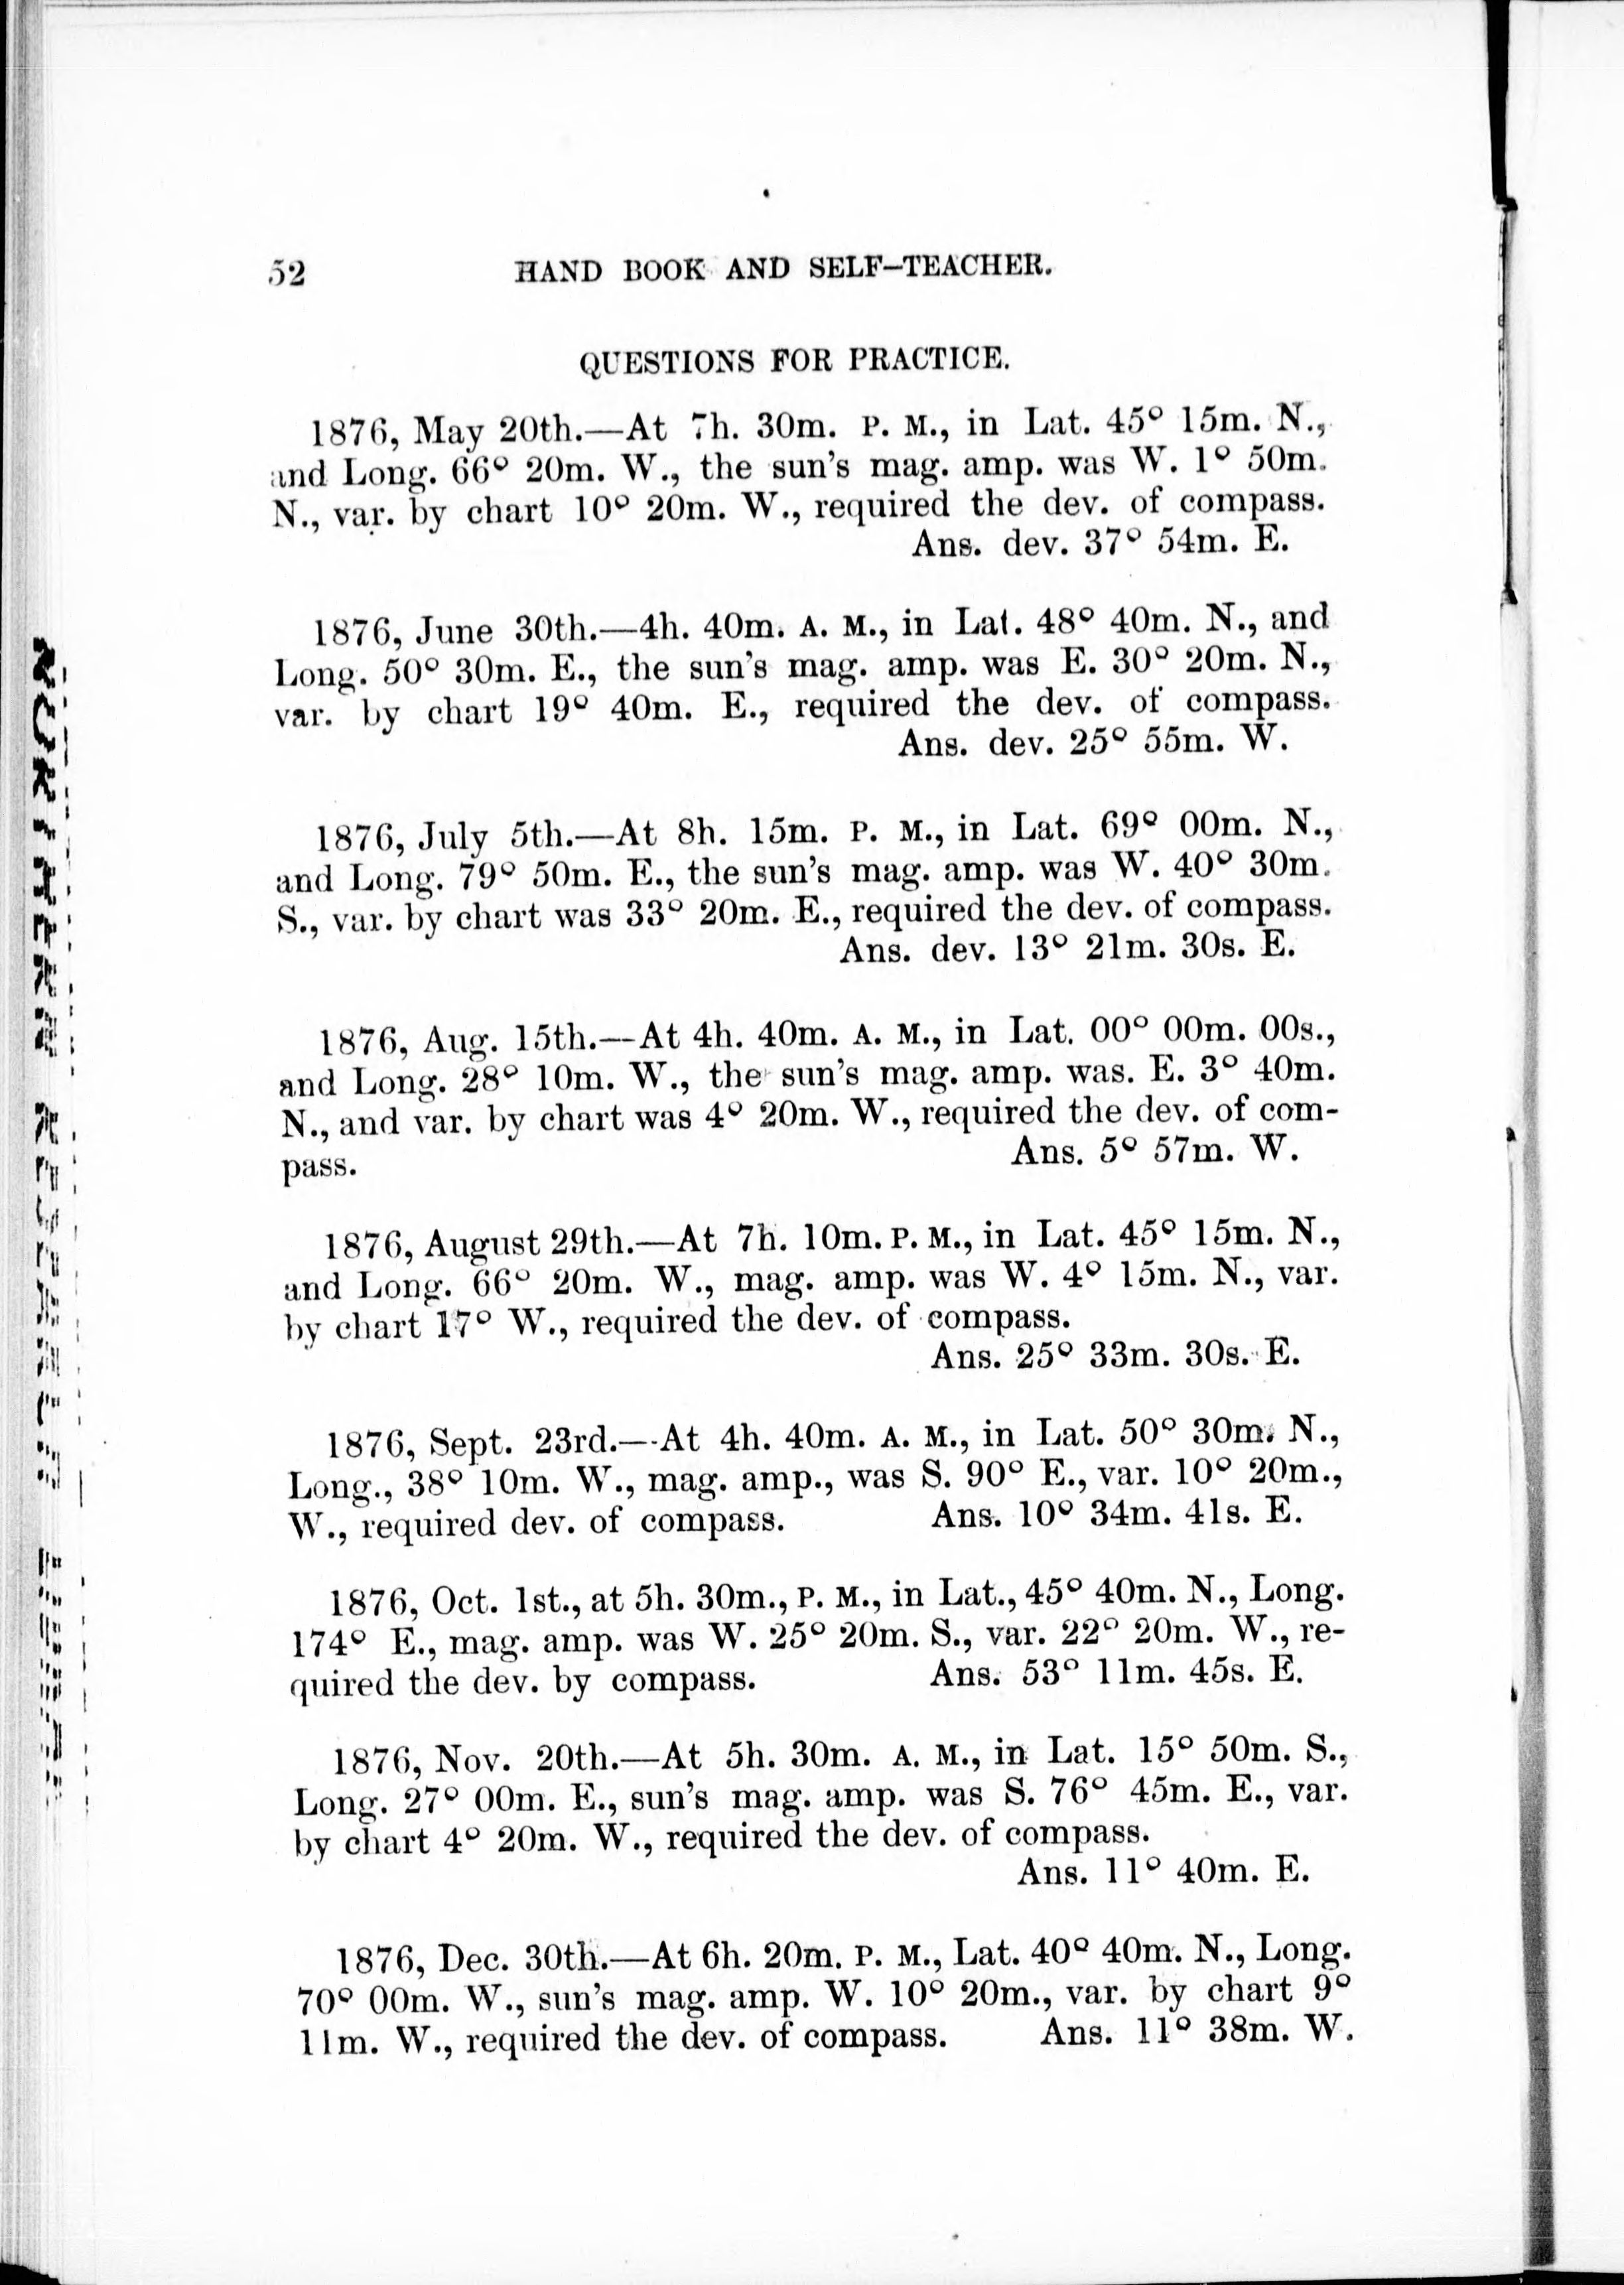 52 HAND BOOK AND SELF-TEACHER.
QUESTIONS FOR PRACTICE.
1876, May 20th.—At 7h. 30m. P. M., in Lat. 45° 15m. N.,
and Long. 66° 20m. W., the sun's mag. amp. was W. 1° 50m.
N., var. by chart 10° 20m. W., required the dev. of compass.
Ans. dev. 37° 54m. E.
1876, June 30th.—4h. 40m. A. M., in Lat. 48° 40m. N., and
Long. 50° 30m. E., the sun's mag. amp. was E. 30° 20m. N.,
var. by chart 19° 40m. E., required the dev. of compass.
Ans. dev. 25° 55m. W.
1876, July 5th.—At 8h. 15m. P. M., in Lat. 69° 00m. N.,
and Long. 79° 50m. E., the sun's mag. amp. was W. 40° 30m.
S., var. by chart was 33° 20m. E., required the dev. of compass.
Ans. dev. 13° 21m. 30s. E.
1876, Aug. 15th.—At 4h. 40m. A. M., in Lat. 00° 00m. 00s.,
and Long. 28° 10m. W., the sun's mag. amp. was. E. 3° 40m.
N., and var. by chart was 4° 20m. W., required the dev. of com-
pass. Ans. 5° 57m. W.
1876, August 29th.—At 7h. 10m. P. M., in Lat. 45° 15m. N.,
and Long. 66° 20m. W., mag. amp. was W. 4° 15m. N., var.
by chart 17° W., required the dev. of compass.
Ans. 25° 33m. 30s. E.
1876, Sept. 23rd.—At 4h. 40m. A. M., in Lat. 50° 30m. N.,
Long., 38° 10m. W., mag. amp., was S. 90° E., var. 10° 20m.,
W., required dev. of compass. Ans. 10° 34m. 41s. E.
1876, Oct. 1st., at 5h. 30m., P. M., in Lat., 45° 40m. N., Long.
174° E., mag. amp. was W. 25° 20m. S., var. 22° 20m. W., re-
quired the dev. by compass. Ans. 53° 11m. 45s. E.
1876, Nov. 20th.—At 5h. 30m. A. M., in Lat. 15° 50m. S.,
Long. 27° 00m. E., sun's mag. amp. was S. 76° 45m. E., var.
by chart 4° 20m. W., required the dev. of compass.
Ans. 11° 40m. E.
1876, Dec. 30th.—At 6h. 20m. P. M., Lat. 40° 40m. N., Long.
70° 00m. W., sun's mag. amp. W. 10° 20m., var. by chart 9°
11m. W., required the dev. of compass. Ans. 11° 38m. W.